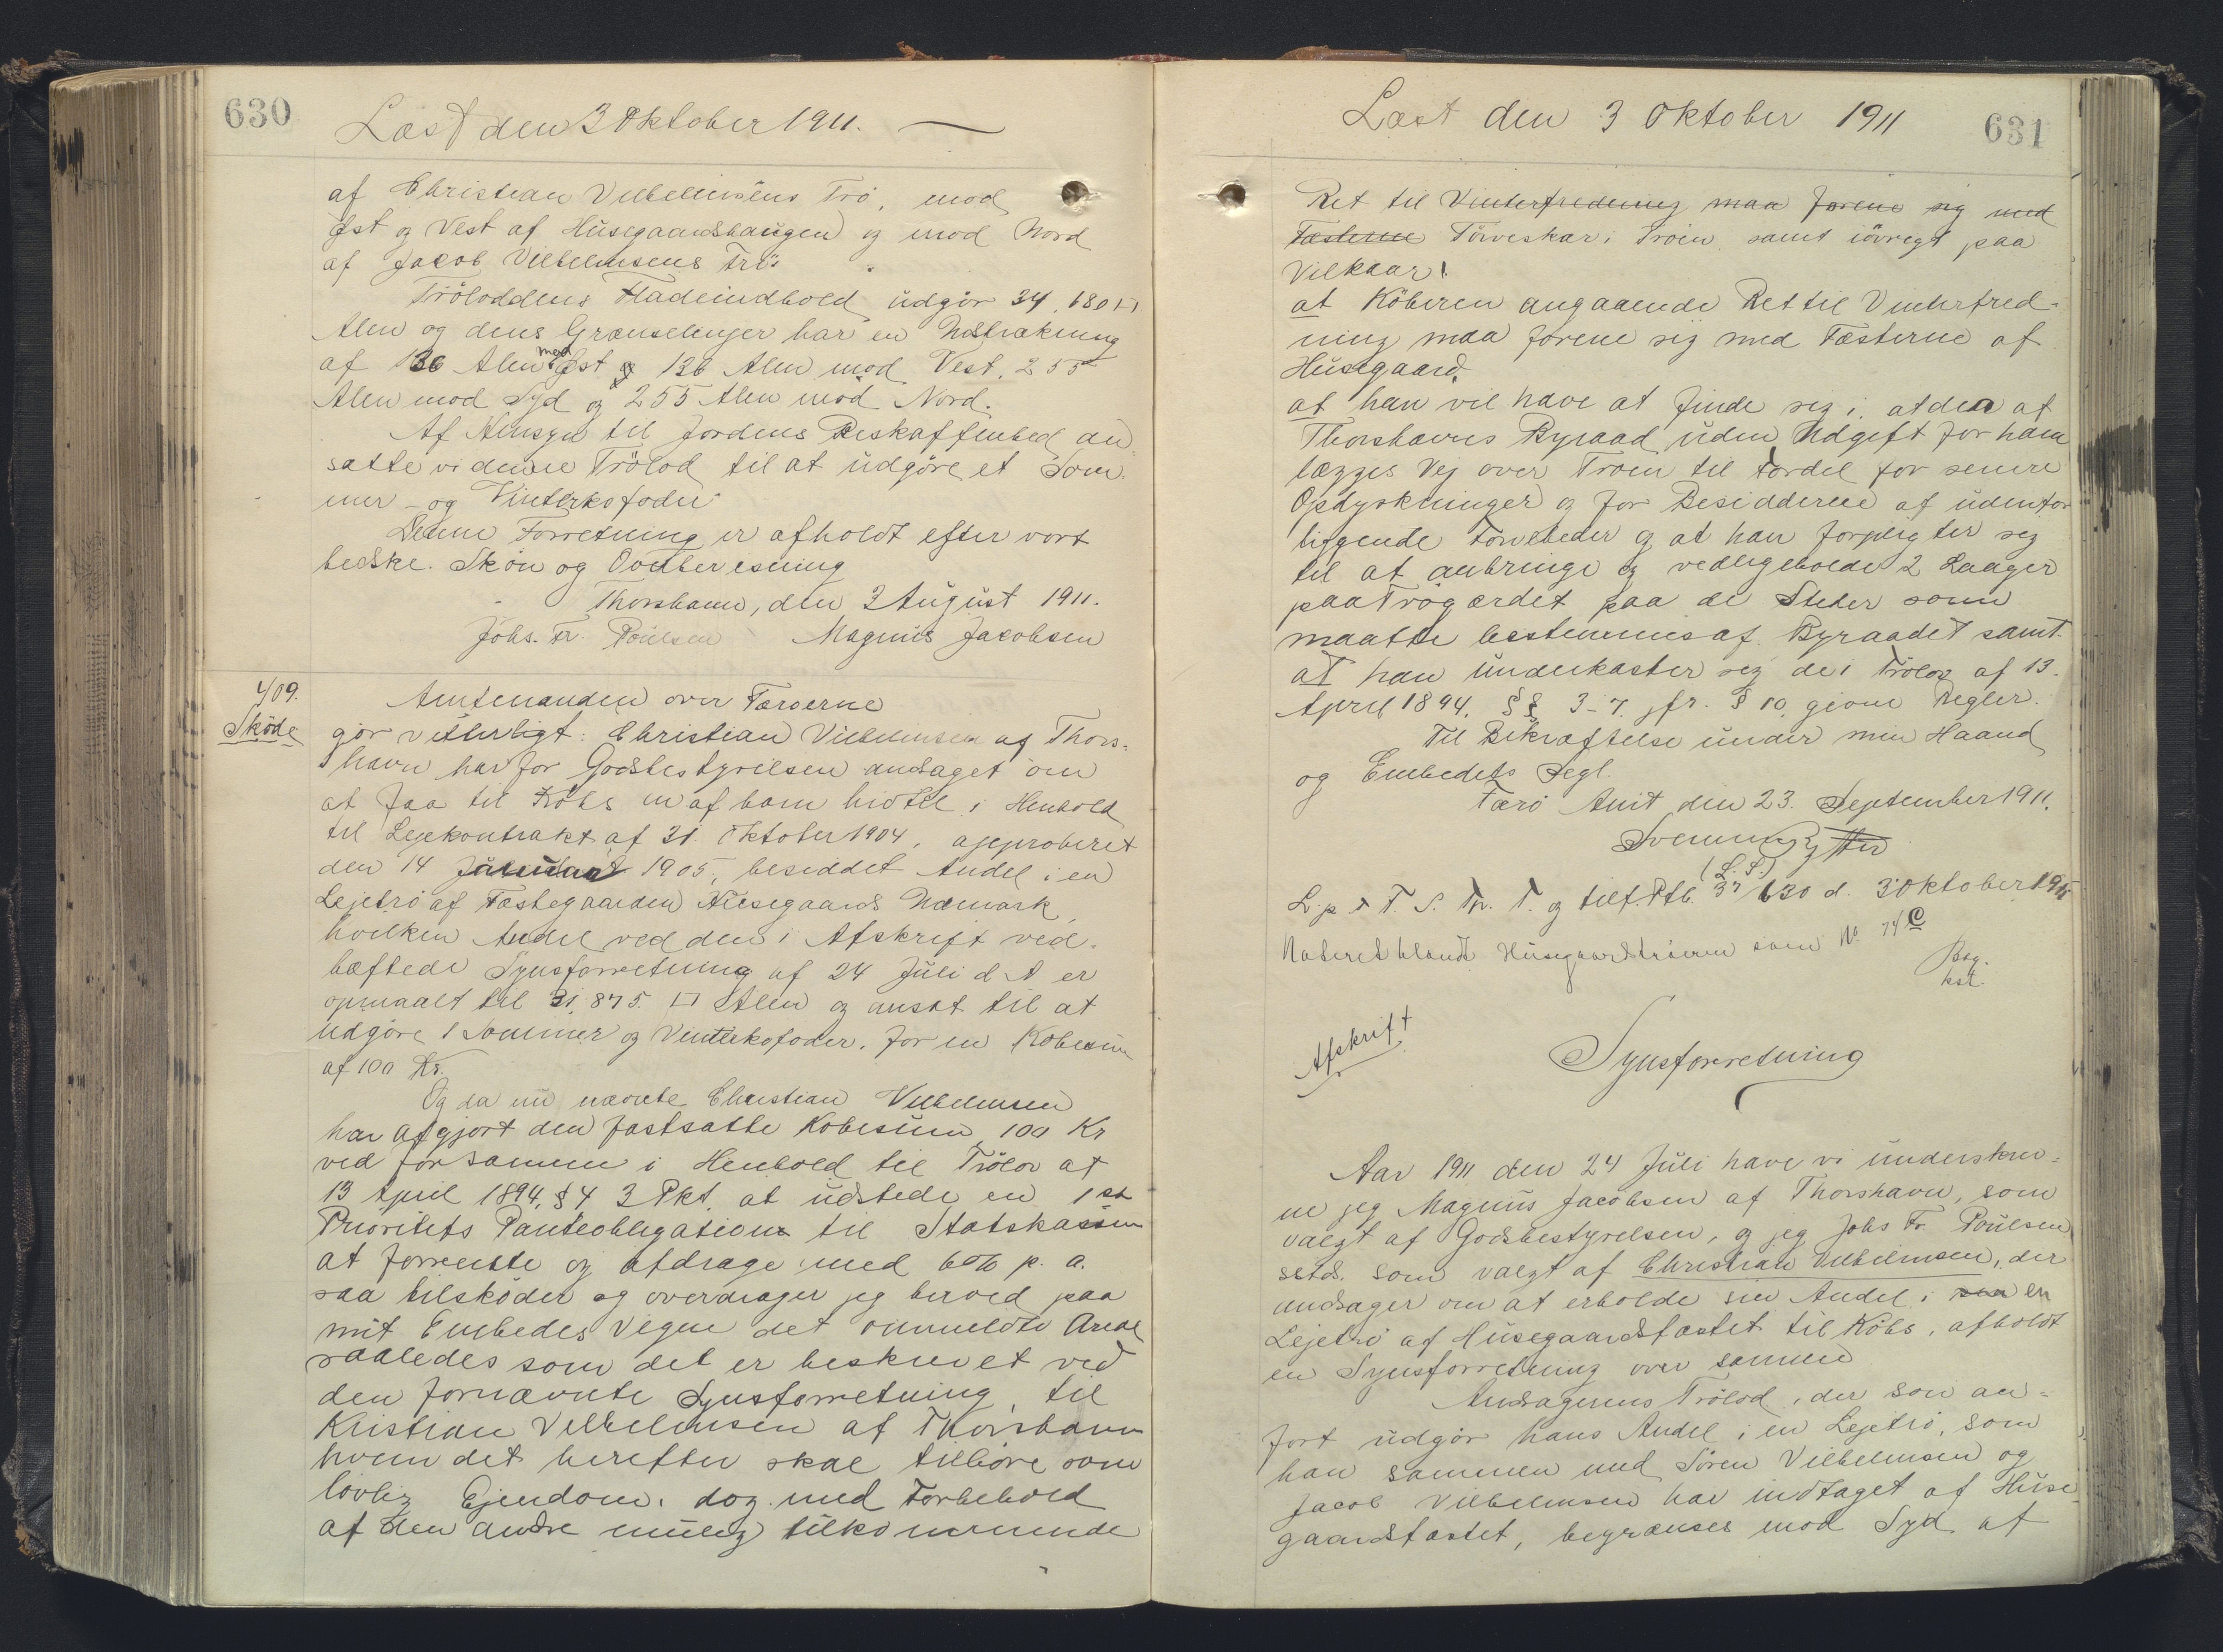 630
Læst den 3 Oktober 1911.
af Christian Vilhelmsens Trö, mod
Øst og Vest af Húsegaardshaugen og mod Nord
af Jacob Vilhelmsens Trö.
Tröloddens Fladeindhold údgör 34,680 □
Alen og dens Grænselinjer har en Udstrækning
af 136 Alen mod Øst og 136 Alen mod Vest, 255
Alen mod Syd og 255 Alen mod Nord.
Af Hensyn til Jordens Beskaffenhed an-
satte vi denne Trölod til at údgöre et Som-
mer- og Vinterkofoder.
Denne Forretning er afholdt efter vort
bedste Skön og Overbevisning
Thorshavn, den 3 Aúgúst 1911.
Johs. Fr. Poúlsen Magnús Jacobsen
4/09.
Sköde
Amtmanden over Færoerne
gör vitterligt: Christian Vilhelmsen af Thors-
havn har for Godsbestyrelsen andraget om
at faa til Köbs en af ham hidtil i Henhold
til Lejekontrakt af 31 Oktober 1904, approberet
den 14 Janúar 1905, besiddet Andel i en
Lejetrö af Fæstegaarden Húsegaards Udmark,
hvilken Andel ved den i Afskrift ved-
hæftede Synsforretning af 24 Júli d. A er
opmaalt til 31,875 □ Alen og ansat til at
údgöre 1 Sommer og Vinterkofoder, for en Köbesúm
af 100 Kr.
Og da nú nævnte Christian Vilhelmsen
har afgjort den fastsatte Köbesúm 100 Kr
ved for samme i Henhold til Trölov af
13 April 1894, § 4 3 Pkt. at údstede en 1ste
Prioritets Panteobligation til Statskassen
at forrente og afdrage med 6% p. a.
saa tilsköder og overdrager jeg herved paa
mit Embedes Vegne det ommeldte Areal
saaledes som det er beskrevet ved
den fornævnte Synsforretning, til
Kristian Vilhelmsen af Thorshavn
hvem det herefter skal tilhöre som
lovlig Ejendom, dog med Forbehold
af den andre múlig tilkommende
Læst den 3 Oktober 1911
631
Ret til Vinterfredning maa forene sig med
Fæsterne Törveskær i Tröen samt iövrigt paa
Vilkaar:
at Köberen angaaende Ret til Vinterfred-
ning maa forene sig med Fæsterne af
Húsegaard,
at han vil have at finde sig i, at der af
Thorshavns Byraad úden Udgift for ham
lægges Vej over Tröen til Fordel for senere
Opdyrkninger og for Besidderne af údenfor
liggende Törveheder og at han forpligter sig
til at anbringe og vedligeholde 2 Laager
paa Trögærdet paa de Steder som
maatte bestemmes af Byraadet samt
at han únderkaster sig de i Trölov af 13.
April 1894, §§ 3-7, jfr. § 10, givne Regler.
Til Bekræftelse únder min Haand
og Embedets Segl.
Færö Amt, den 23. September 1911.
Svenning Rytter
(L.S.)
L. p. F. S. Th. T. og tilf. Ptb. 37/630 d. 3 Oktober 1911
Noteret blandt Húsegaardströerne som No. 74 C
Afskrift
Synsforretning
Aar 1911 den 24 Júli have vi únderskrev-
ne jeg Magnús Jacobsen af Thorshavn, som
valgt af Godsbestyrelsen, og jeg Johs Fr. Poúlsen
sstds. som valgt af Christian Vilhelmsen, der
andrager om at erholde sin Andel i en
Lejetrö af Húsegaardsfæstet til Köbs, afholdt
en Synsforretning over samme
Andragerens Trölod, der som an-
fört údgör hans Andel i en Lejetrö, som
han sammen med Sören Vilhelmsen og
Jacob Vilhelmsen har indtaget af Húse-
gaardsfæstet, begrænses mod Syd af